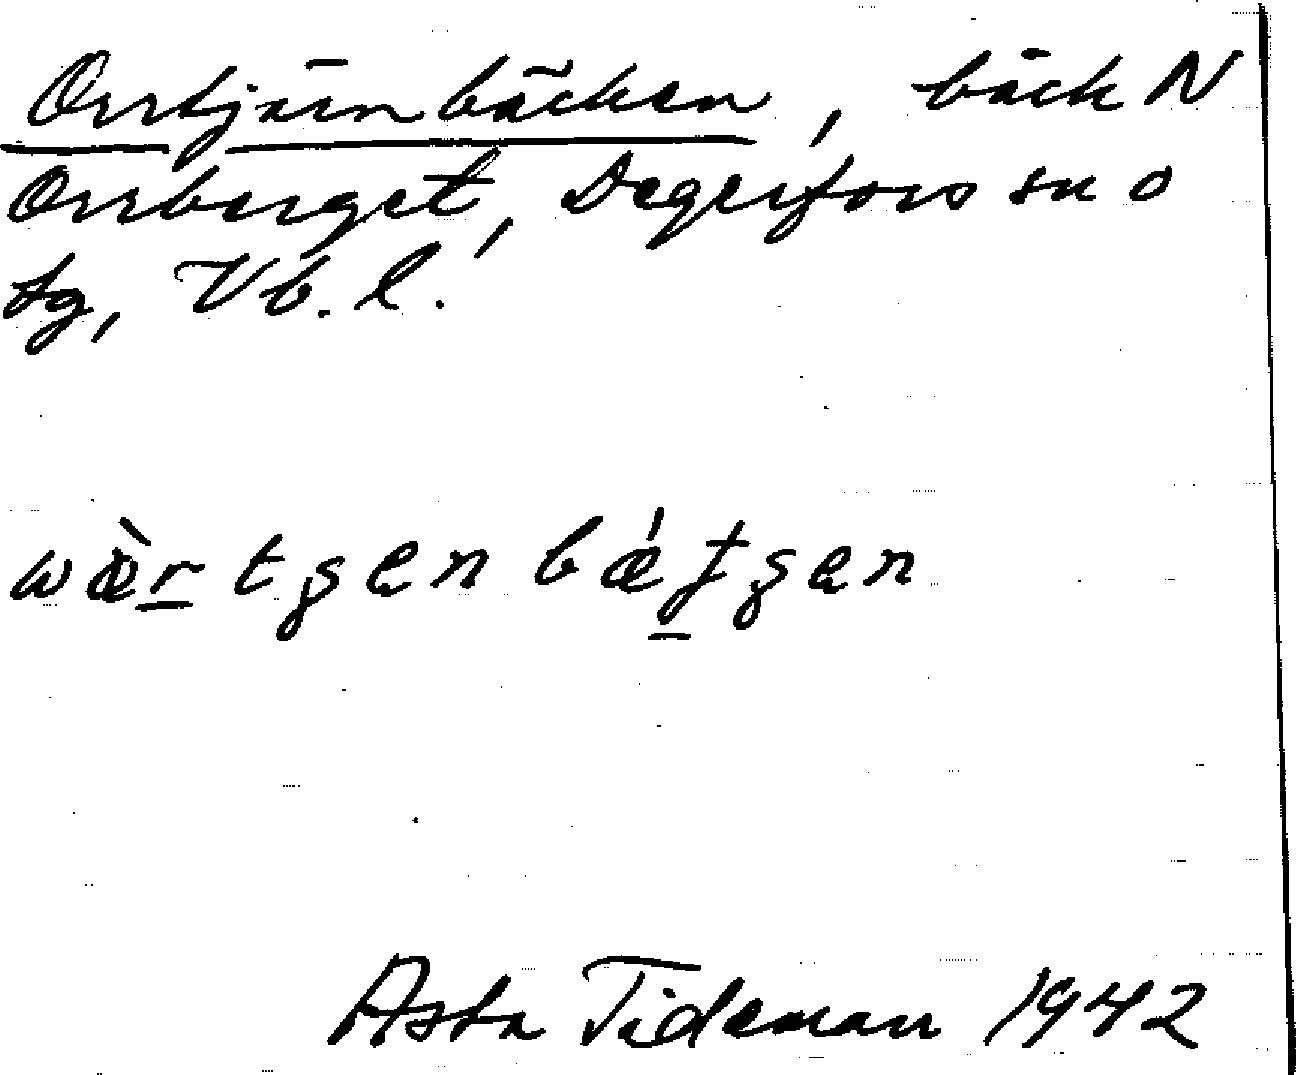 Orrtjärnbäcken, bäck N
Orrberget, Degerfors sn o
tg, Vb. l.
Asta Tideman 1942